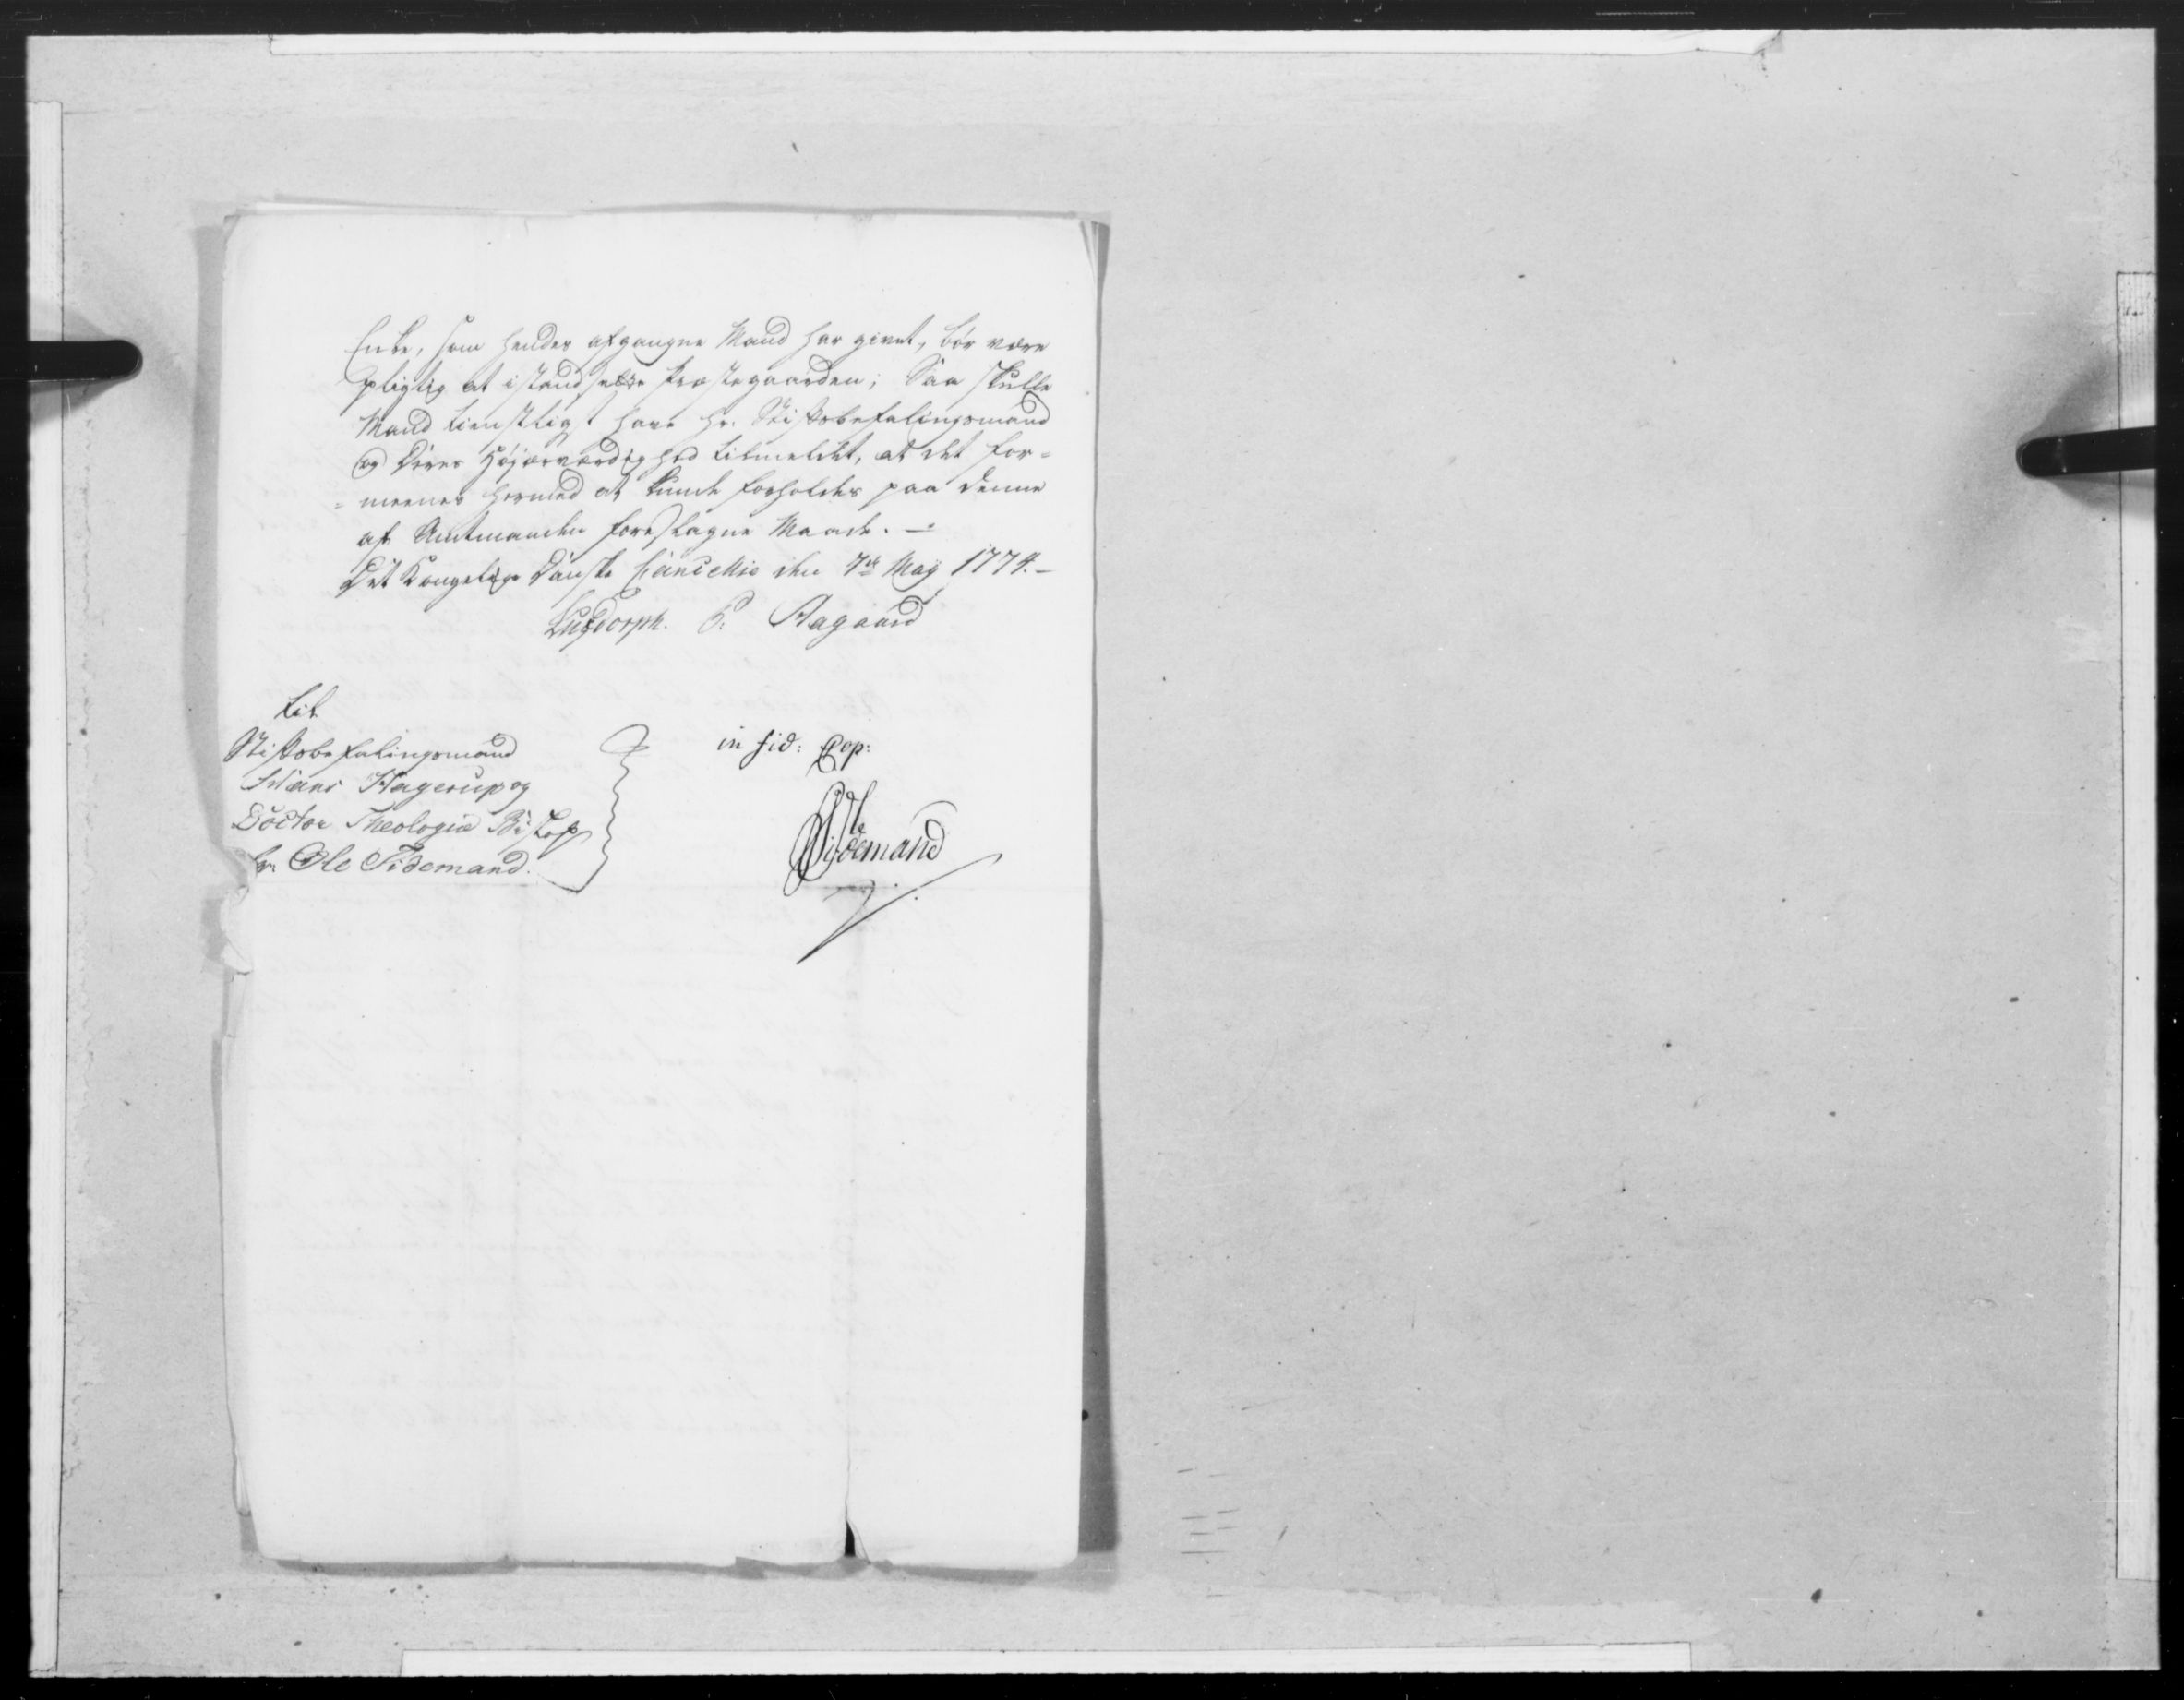 Enke, som hendes afgangne Mand har givet, bör være
pligtig at istandsette Præstegaarden; Saa skulle
Mand tienstligst have Hr. Stiftsbefalingsmand
og Deres Höjærværdighed tilmeldet, at det for-
=meenes hermed at kunde forholdes paa denne
af Amtmanden foreslagne Maade. -
Det Kongelige Danske Cancellie den 7de Maÿ 1774. -
Luxdorph. P: Aagaard
Til
Stiftsbefalingsmand
Hans Hagerup og
Doctor Theologiæ Biskop
Hr. Ole Tidemand.
in fid: Cop:
Ole
Tidemand